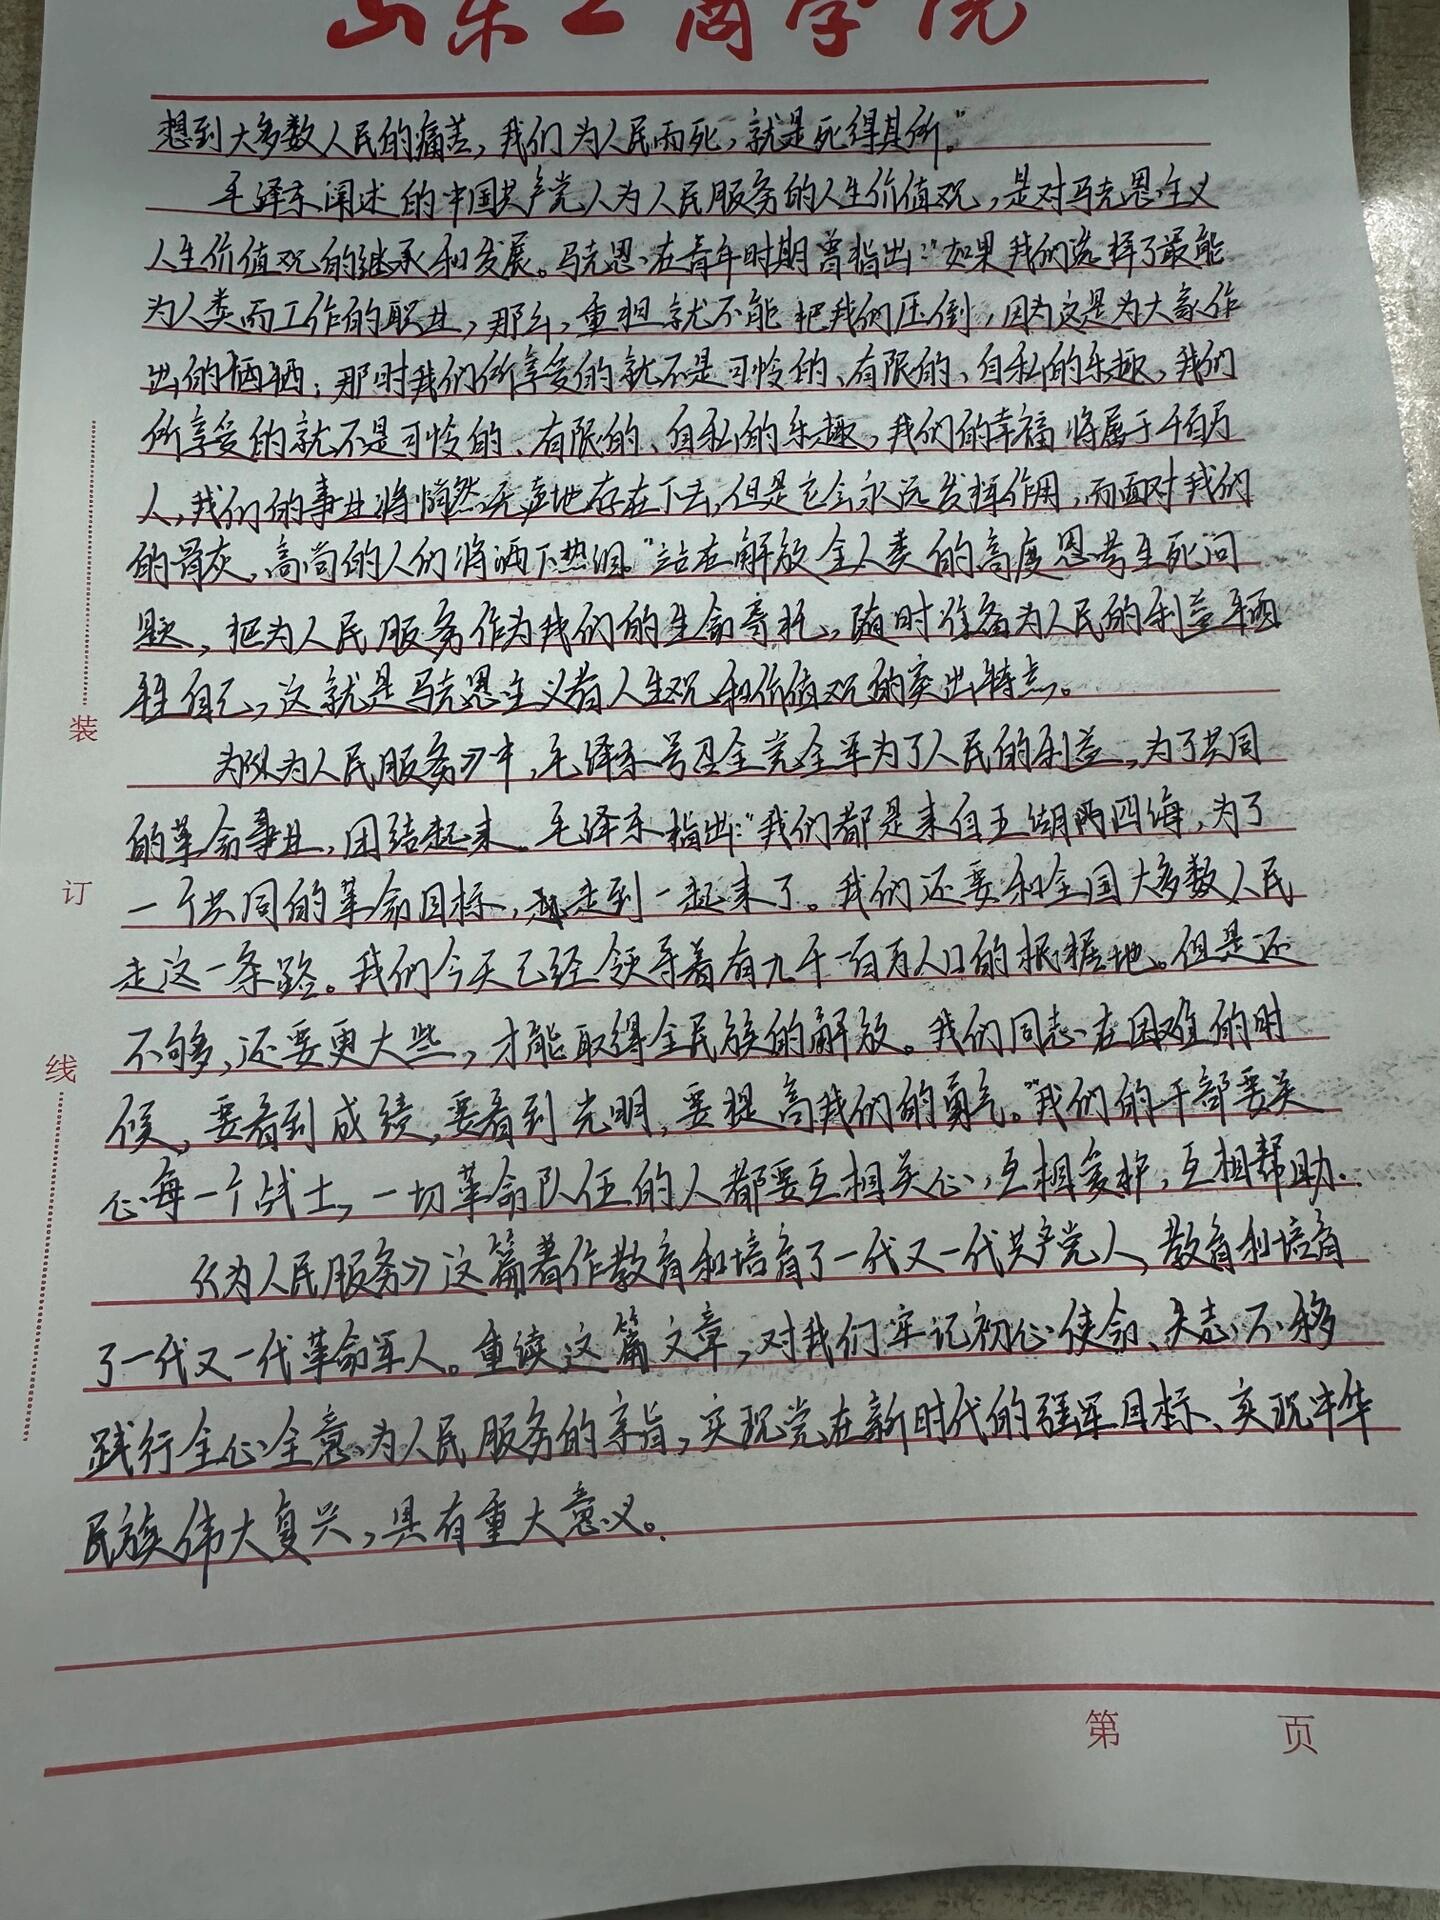 山东工商学院
想到大多数人民的痛苦,我们为人民而死,就是死得其所。”
毛泽东阐述的中国共产党人为人民服务的人生价值观,是对马克思主义
人生价值观的继承和发展。马克思在青年时期曾指出:“如果我们选择了最能
为人类而工作的职业,那么,重担就不能把我们压倒,因为这是为大家作
出的牺牲;那时我们所享受的就不是可怜的、有限的、自私的乐趣,我们
所享受的就不是可怜的、有限的、自私的乐趣,我们的幸福将属于千百万
人,我们的事业将悄然无声地存在下去,但是它会永远发挥作用,而面对我们
的骨灰,高尚的人们将洒下热泪。”站在解放全人类的高度思考生死问
题,把为人民服务作为我们的生命寄托,随时准备为人民的利益牺
牲自己,这就是马克思主义者人生观和价值观的突出特点。
为人民服务》中,毛泽东号召全党全军为了人民的利益,为了共同
的革命事业,团结起来。毛泽东指出:“我们都是来自五湖四海,为了
一个共同的革命目标,走到一起来了。我们还要和全国大多数人民
走这一条路。我们今天已经领导着有九千一百万人口的根据地。但是还
不够,还要更大些,才能取得全民族的解放。我们同志在困难的时
候,要看到成绩,要看到光明,要提高我们的勇气。”“我们的干部要关
心每一个战士,一切革命队伍的人都要互相关心,互相爱护,互相帮助.
《为人民服务》这篇著作教育和培育了一代又一代共产党人,教育和培育
了一代又一代革命军人。重读这篇文章,对我们牢记初心使命、矢志不移
践行全心全意为人民服务的宗旨,实现党在新时代的强军目标、实现中华
民族伟大复兴,具有重大意义。
装
订
线
第 页